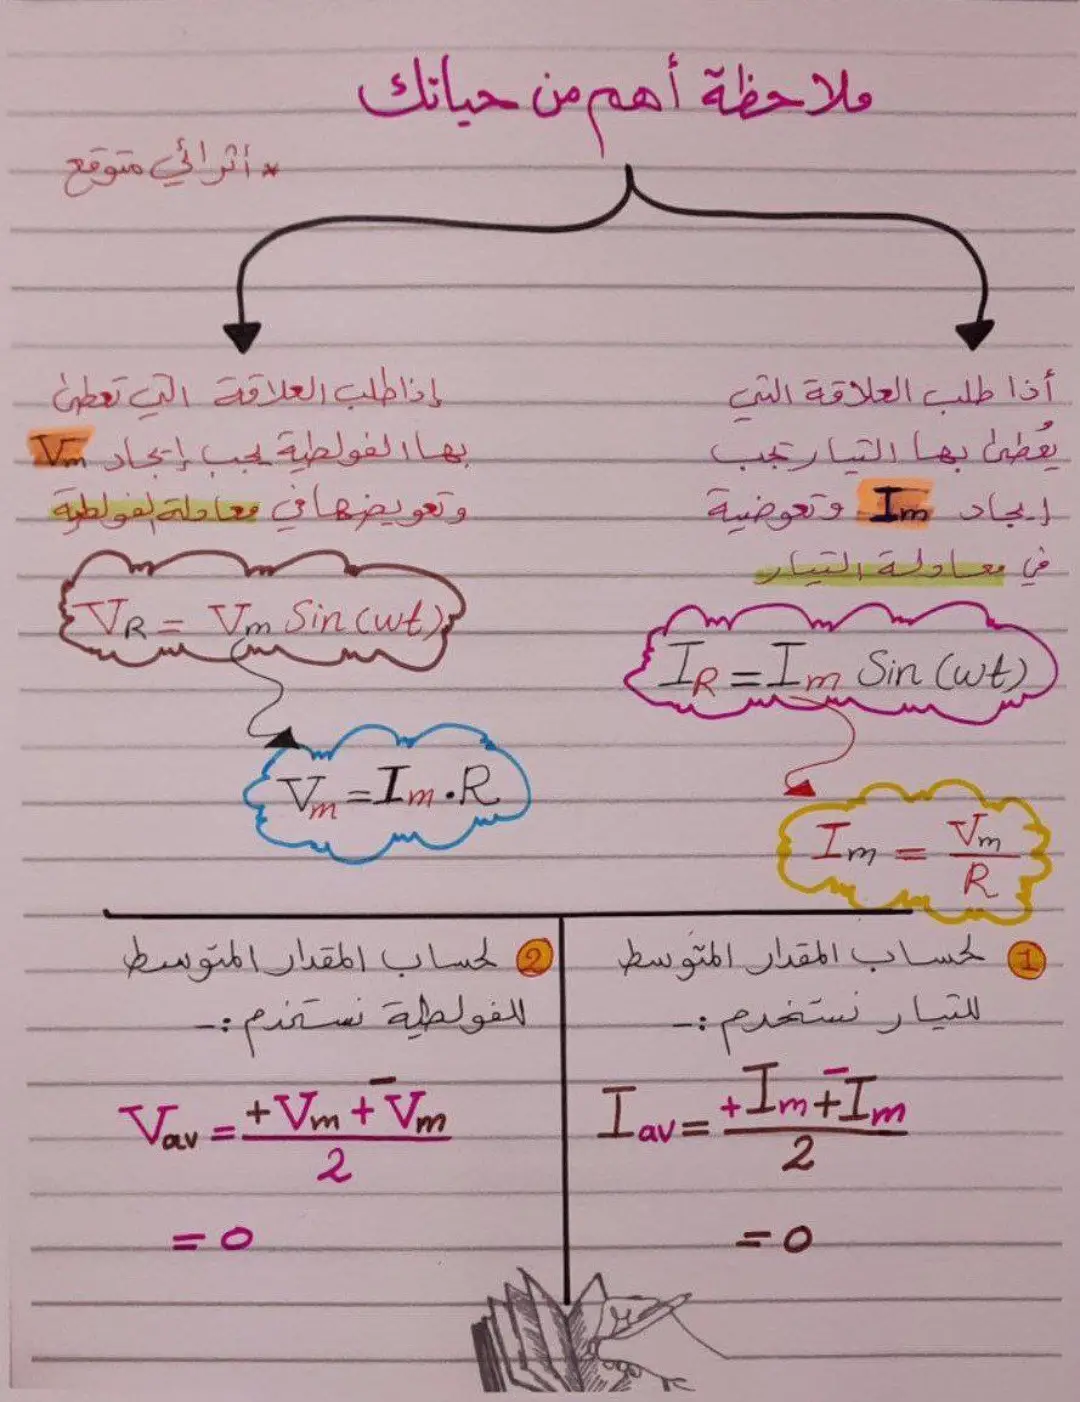 ملاحظة أهم من حياتك
* أثرائي متوقع
أذا طلب العلاقة التي
يُعطى بها التيار تجب
إيجاد Im وتعوضية
في معاولة التيار
IR = Im Sin (wt)
Im = Vm / R
إذا طلب العلاقة التي تعطى
بها الفولطية يجب إيجاد Vm
وتعويضها في معادلة الفولطية
VR = Vm Sin (wt)
Vm = Im . R
1 لحساب المقدار المتوسط
للتيار نستخدم :-
Iav = +Im + -Im / 2
= 0
2 لحساب المقدار المتوسط
للفولطية نستخدم :-
Vav = +Vm + -Vm / 2
= 0